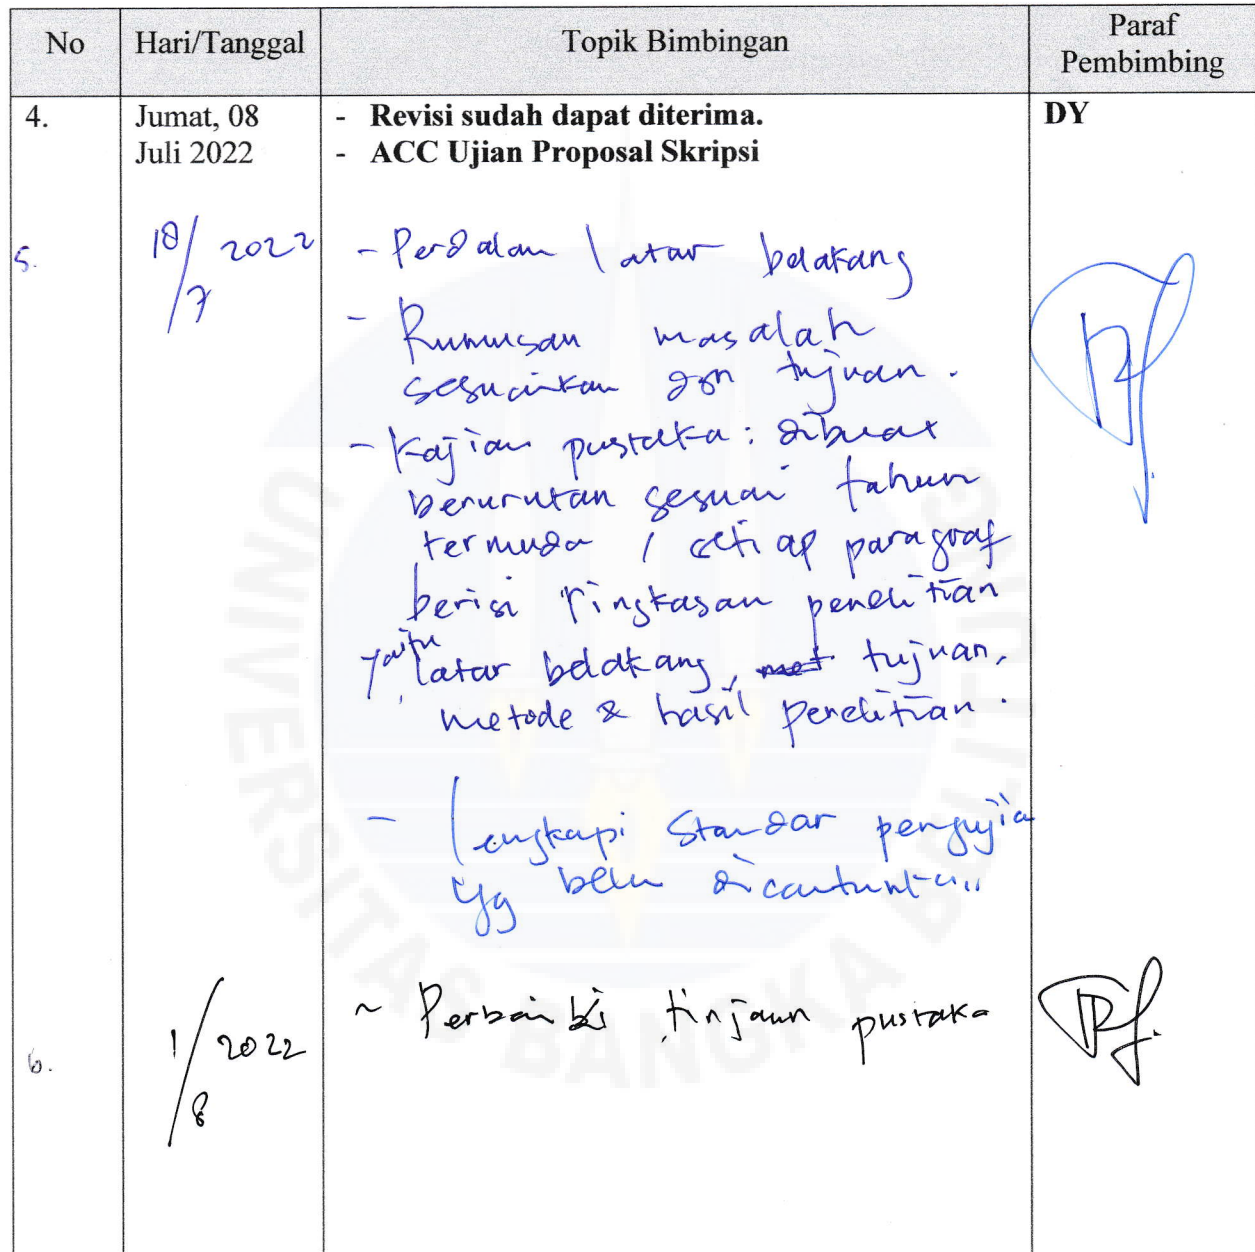 No Hari/Tanggal Topik Bimbingan Paraf Pembimbing
4. Jumat, 08 Juli 2022 - Revisi sudah dapat diterima. DY
- ACC Ujian Proposal Skripsi
5. 18/7 2022 - Perdalam latar belakang
- Rumusan masalah
sesuaikan dgn tujuan.
- Kajian pustaka : dibuat
berurutan sesuai tahun
termuda / setiap paragraf
berisi ringkasan penelitian
yaitu latar belakang, tujuan,
metode & hasil penelitian.
- Lengkapi standar pengujia
yg belu dicantumka
6. 1/8 2022 ~ Perbaiki tinjaun pustaka
UNIVERSITAS BANGKA BELITUNG